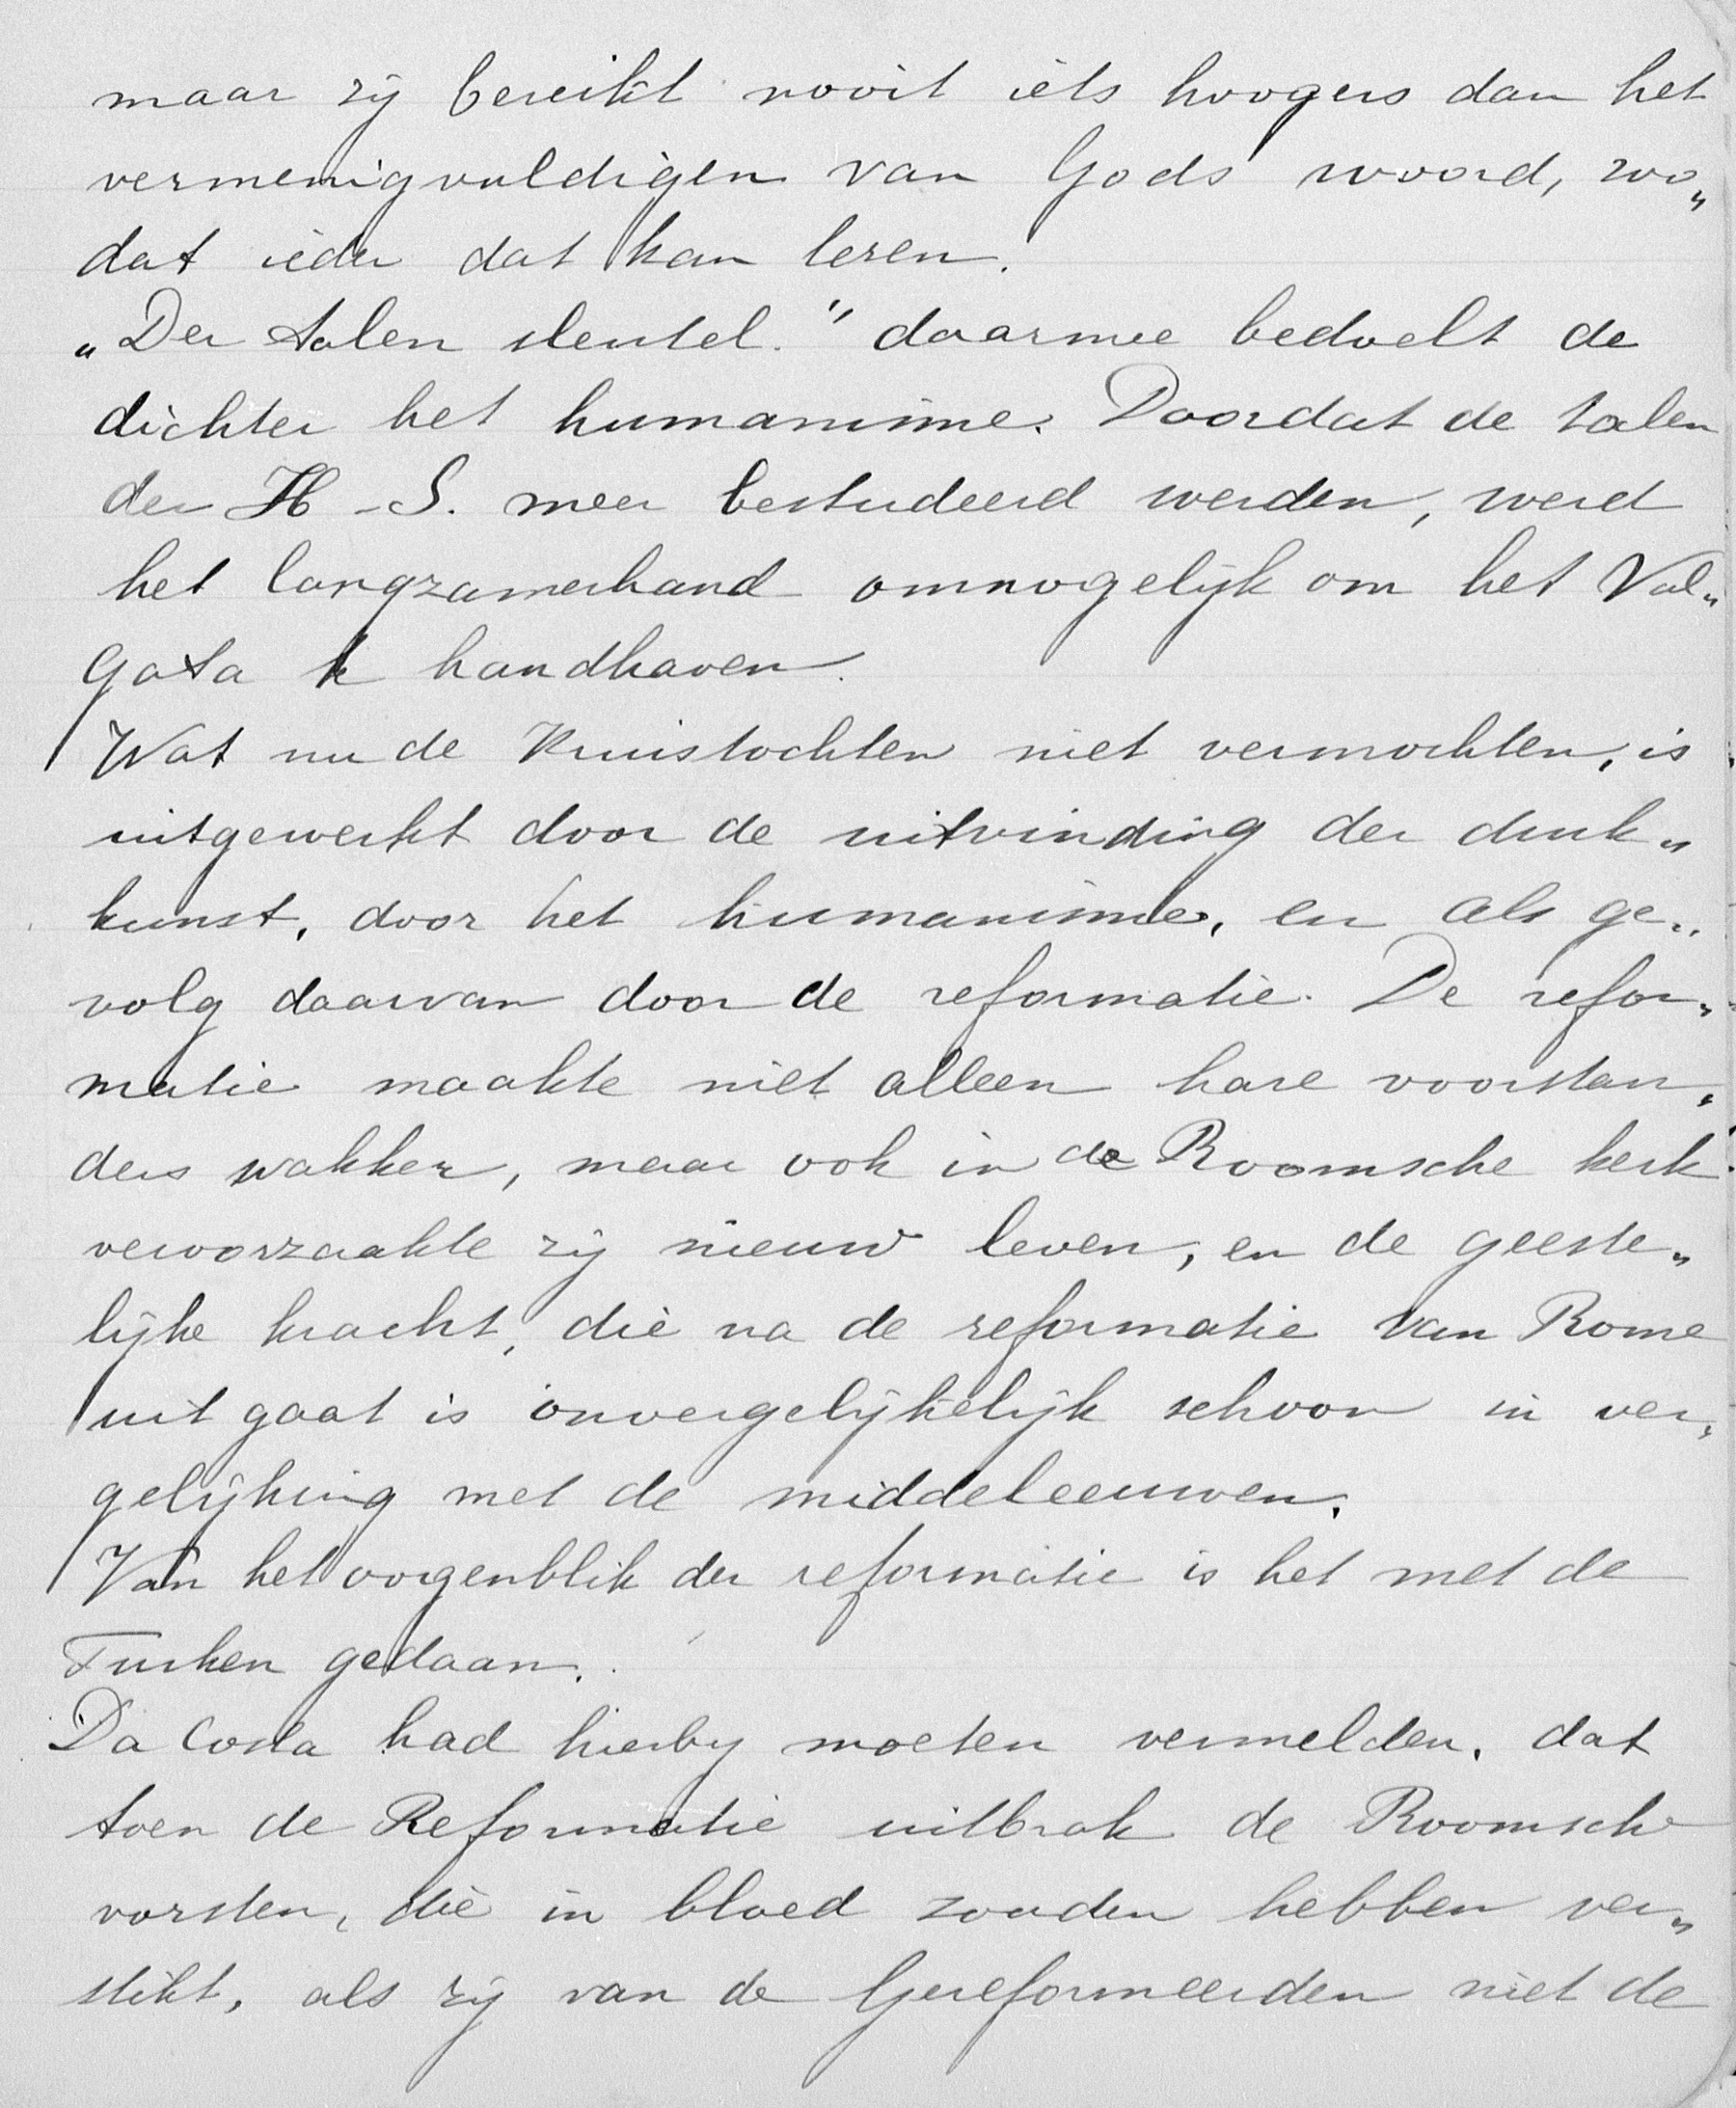 maar zij bereikt nooit iets hoogers dan het
vermenigvuldigen van Gods woord, zoo„
dat ieder dat kan lezen.
„Der talen sleutel." daarmee bedoelt de
dichter het humanisme. Doordat de talen
der H-S. meer bestudeerd werden, werd
het langzamerhand onmogelijk om het Vul„
gata te handhaven.
Wat nu de Kruistochten niet vermochten, is
uitgewerkt door de uitvinding der druk„
kunst, door het humanisme, en als ge„
volg daarvan door de reformatie. De refor„
matie maakte niet alleen hare voorstan„
ders wakker, maar ook in de Roomsche kerk
veroorzaakte zij nieuw leven, en de geeste„
lijke kracht, die na de reformatie van Rome
uit gaat is onvergelijkelijk schoon in ver„
gelijking met de middeleeuwen.
Van het oogenblik der reformatie is het met de
Turken gedaan.
Da Costa had hierby moeten vermelden, dat
toen de Reformatie uitbrak de Roomsche
vorsten, die in bloed zouden hebben ver„
stikt, als zij van de Gereformeerden niet de